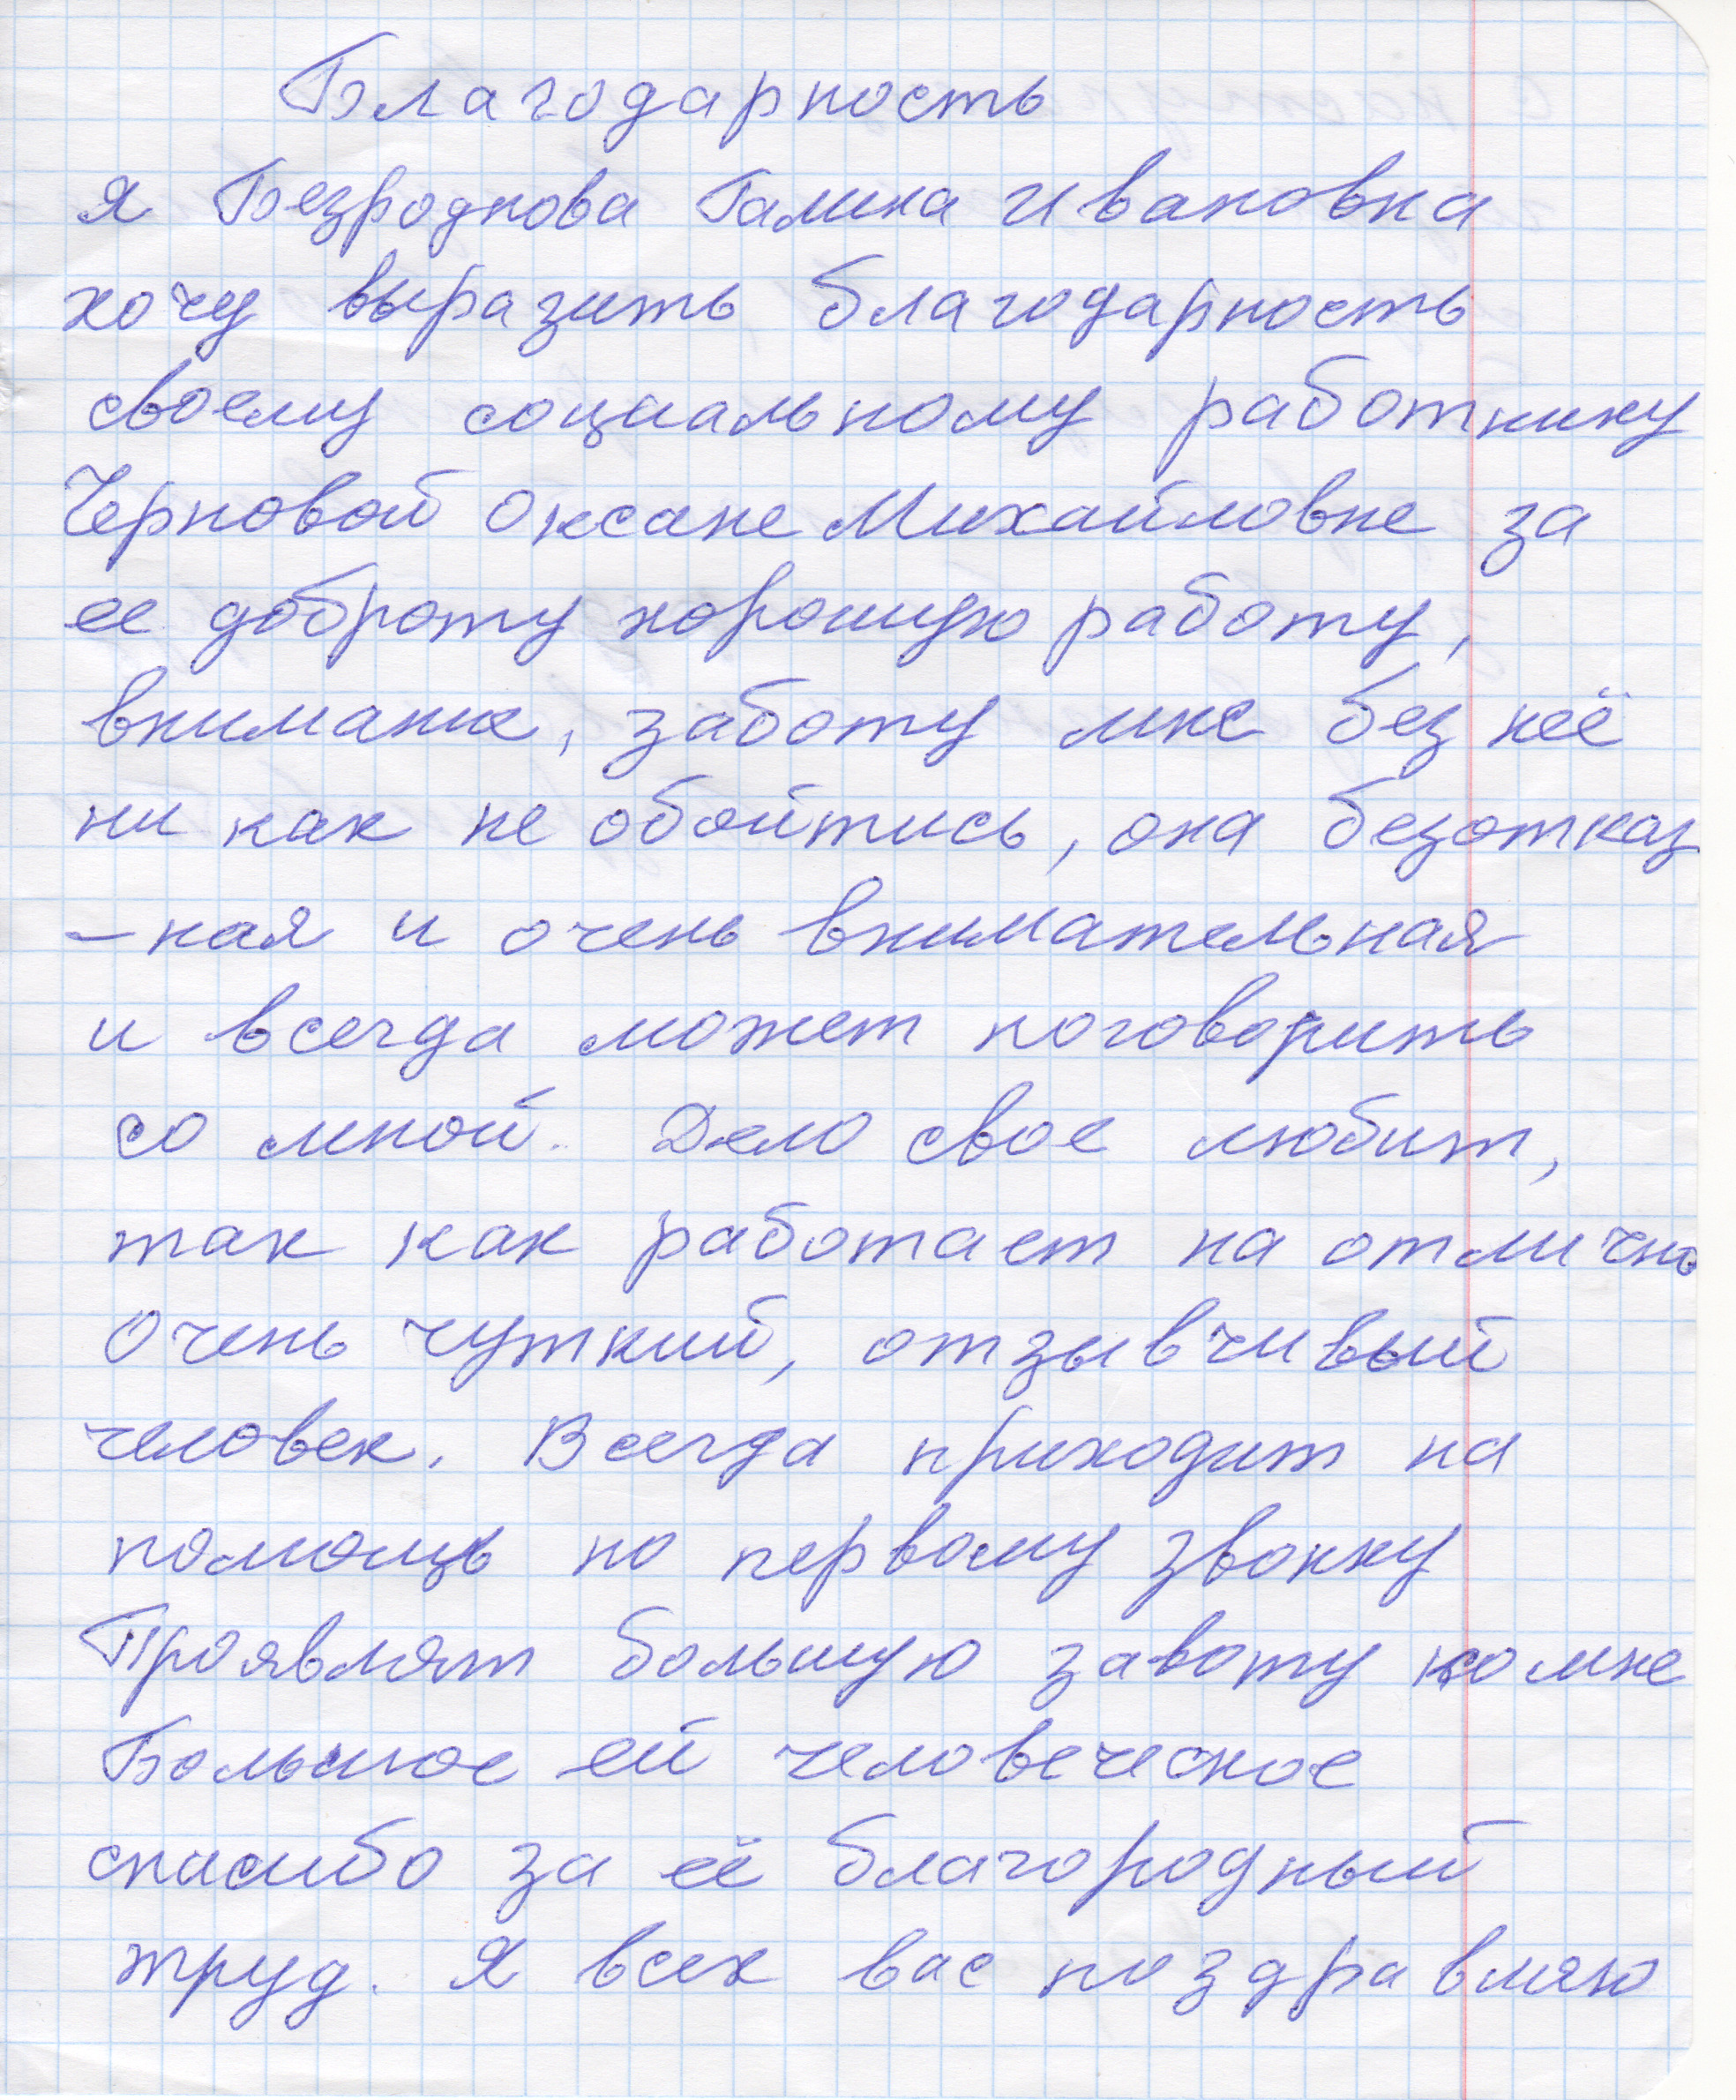 Благодарность
я Безроднова Галина Ивановна
хочу выразить благодарность
своему социальному работнику
Черновой Оксане Михайловне за
ее доброту хорошую работу,
внимание, заботу мне без неё
ни как не обойтись, она безотказ
-ная и очень внимательная
и всегда может поговорить
со мной. Дело свое любит,
так как работает на отлично
Очень чуткий, отзывчивый
человек. Всегда приходит на
помощь по первому звонку
Проявлят большую завоту ко мне
Большое ей человеческое
спасибо за её благородный
труд. Я всех вас поздравляю